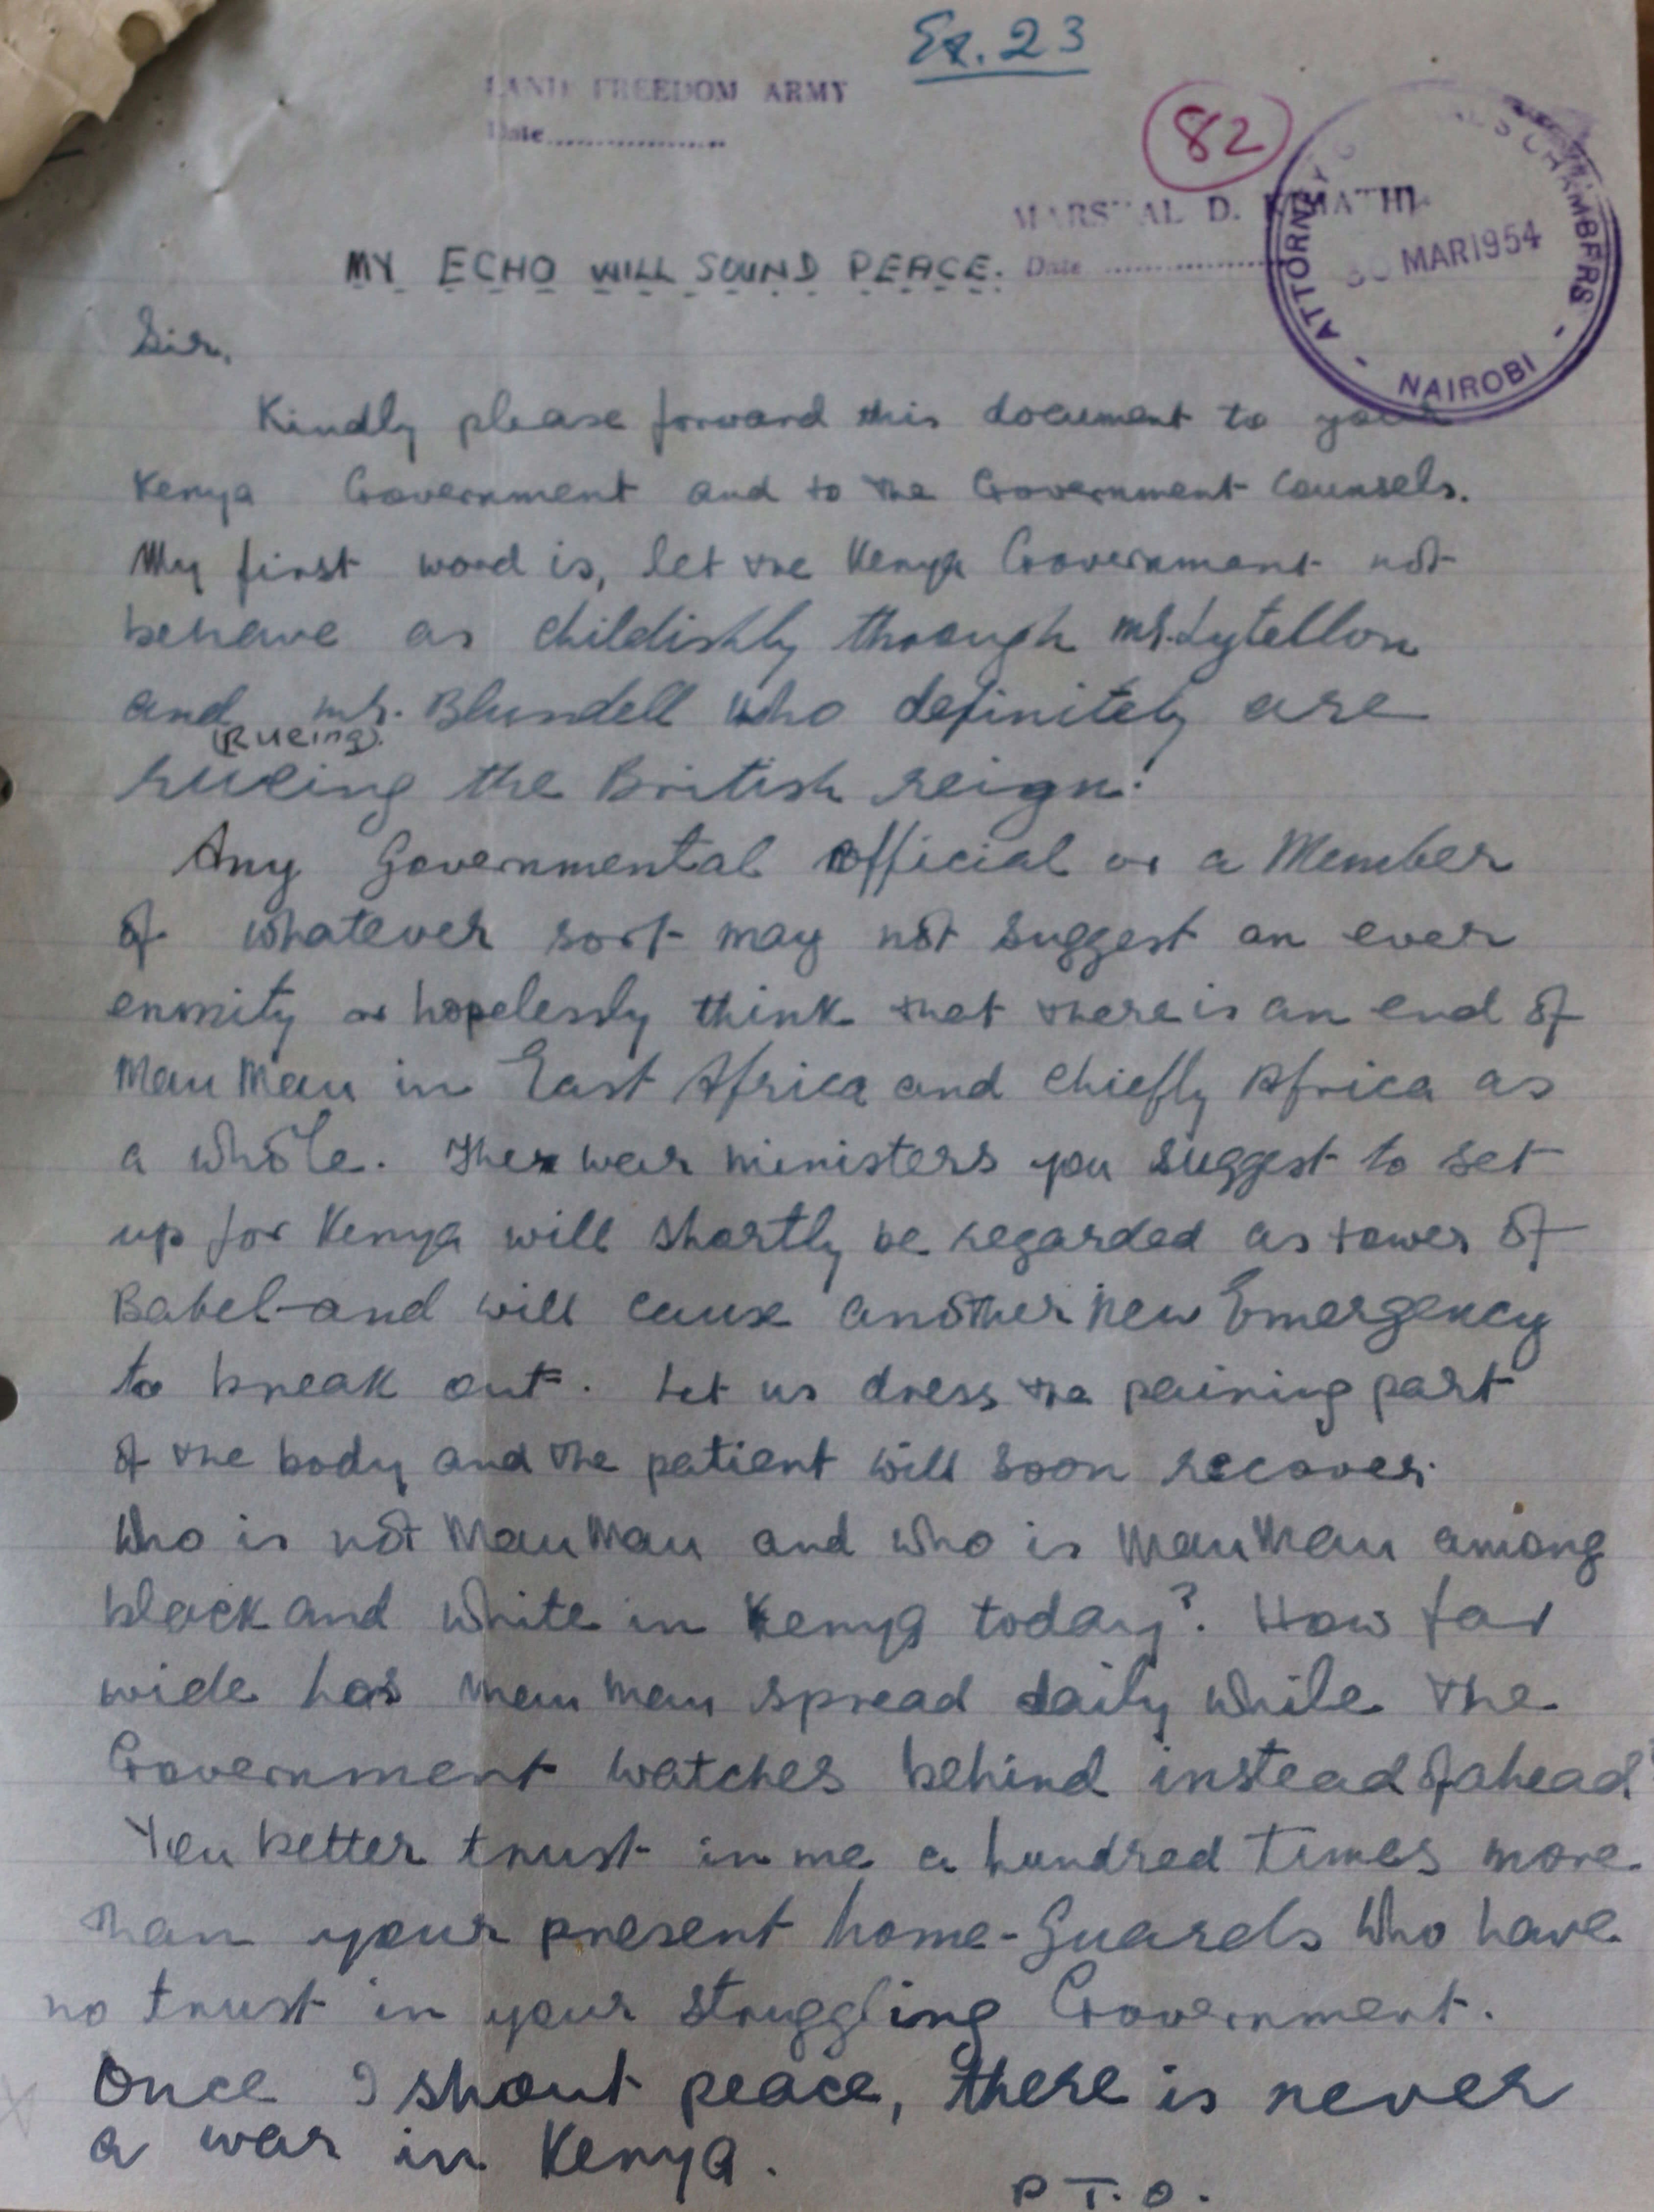 Ex. 23
LAND FREEDOM ARMY
Date....................
82
MARSHAL D. KIMATHI
Date ....................
ATTORNEY GENERAL'S CHAMBERS
30 MAR 1954
- NAIROBI -
MY ECHO WILL SOUND PEACE.
Sir,
Kindly please forward this document to your
Kenya Government and to the Government Counsels.
My first word is, let the Kenya Government not
behave as childishly through mr. Lytellon
and mr. Blundell who definitely are
(Rueing).
rueing the British reign.
Any Governmental official or a Member
of whatever sort may not suggest an ever
enmity or hopelessly think that there is an end of
Mau Mau in East Africa and chiefly Africa as
a whole. The war ministers you suggest to set
up for Kenya will shortly be regarded as tower of
Babel and will cause another new Emergency
to break out. Let us dress the paining part
of the body and the patient will soon recover.
Who is not Mau Mau and who is Mau Mau among
black and white in Kenya today? How far
wide has Mau Mau spread daily while the
Government watches behind instead of ahead?
You better trust in me a hundred times more
than your present home-Guards who have
no trust in your struggling Government.
Once I shout peace, there is never
a war in Kenya.
P.T.O.